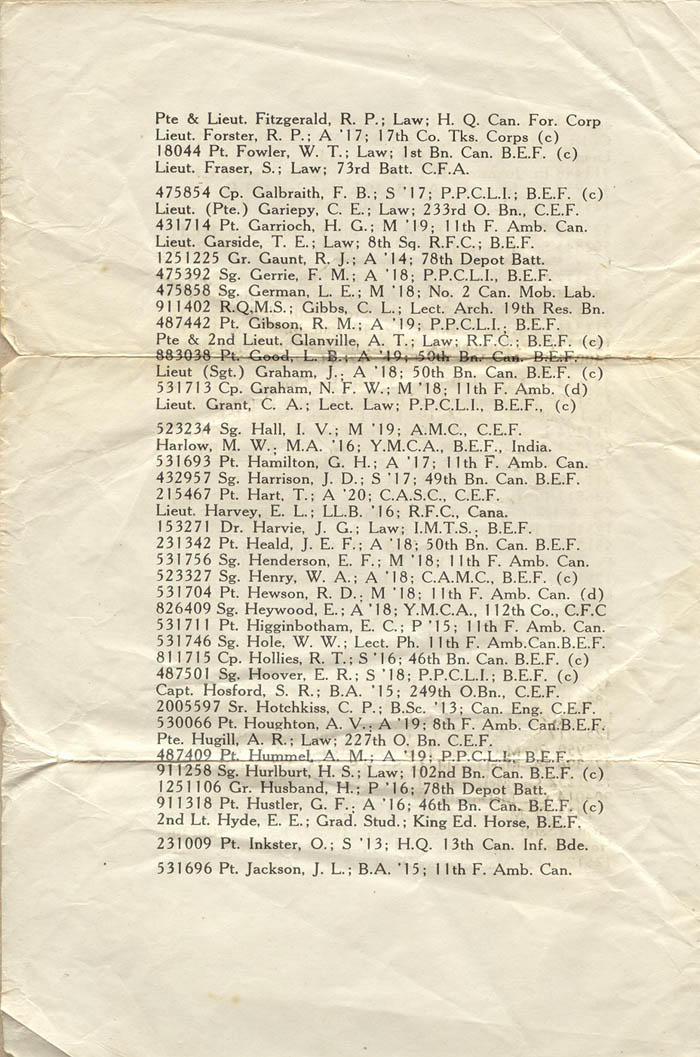 Pte & Lieut. Fitzgerald, R. P.; Law; H. Q. Can. For. Corp
Lieut. Forster, R. P.; A '17; 17th Co. Tks. Corps (c)
18044 Pt. Fowler, W. T.; Law; 1st Bn. Can. B.E.F. (c)
Lieut. Fraser, S.; Law; 73rd Batt. C.F.A.
475854 Cp. Galbraith, F. B.; S '17; P.P.C.L.I.; B.E.F. (c)
Lieut. (Pte.) Gariepy, C. E.; Law; 233rd O. Bn., C.E.F.
431714 Pt. Garrioch, H. G.; M '19; 11th F. Amb. Can.
Lieut. Garside, T. E.; Law; 8th Sq. R.F.C.; B.E.F.
1251225 Gr. Gaunt, R. J.; A '14; 78th Depot Batt.
475392 Sg. Gerrie, F. M.; A '18; P.P.C.L.I., B.E.F.
475858 Sg. German, L. E.; M '18; No. 2 Can. Mob. Lab.
911402 R.Q.M.S.; Gibbs, C. L.; Lect. Arch. 19th Res. Bn.
487442 Pt. Gibson, R. M.; A '19; P.P.C.L.I.; B.E.F.
Pte & 2nd Lieut. Glanville, A. T.; Law; R.F.C.; B.E.F. (c)
883038 Pt. Good, L. B.; A '19; 50th Bn. Can. B.E.F.
Lieut (Sgt.) Graham, J.; A '18; 50th Bn. Can. B.E.F. (c)
531713 Cp. Graham, N. F. W.; M '18; 11th F. Amb. (d)
Lieut. Grant, C. A.; Lect. Law; P.P.C.L.I., B.E.F., (c)
523234 Sg. Hall, I. V.; M '19; A.M.C., C.E.F.
Harlow, M. W.; M.A. '16; Y.M.C.A., B.E.F., India.
531693 Pt. Hamilton, G. H.; A '17; 11th F. Amb. Can.
432957 Sg. Harrison, J. D.; S '17; 49th Bn. Can. B.E.F.
215467 Pt. Hart, T.; A '20; C.A.S.C., C.E.F.
Lieut. Harvey, E. L.; LL.B. '16; R.F.C., Cana.
153271 Dr. Harvie, J. G.; Law; I.M.T.S.; B.E.F.
231342 Pt. Heald, J. E. F.; A '18; 50th Bn. Can. B.E.F.
531756 Sg. Henderson, E. F.; M '18; 11th F. Amb. Can.
523327 Sg. Henry, W. A.; A '18; C.A.M.C., B.E.F. (c)
531704 Pt. Hewson, R. D.; M '18; 11th F. Amb. Can. (d)
826409 Sg. Heywood, E.; A '18; Y.M.C.A., 112th Co., C.F.C
531711 Pt. Higginbotham, E. C.; P '15; 11th F. Amb. Can.
531746 Sg. Hole, W. W.; Lect. Ph. 11th F. Amb.Can.B.E.F.
811715 Cp. Hollies, R. T.; S '16; 46th Bn. Can. B.E.F. (c)
487501 Sg. Hoover, E. R.; S '18; P.P.C.L.I.; B.E.F. (c)
Capt. Hosford, S. R.; B.A. '15; 249th O.Bn., C.E.F.
2005597 Sr. Hotchkiss, C. P.; B.Sc. '13; Can. Eng. C.E.F.
530066 Pt. Houghton, A. V.; A '19; 8th F. Amb. Can.B.E.F.
Pte. Hugill, A. R.; Law; 227th O. Bn. C.E.F.
487409 Pt. Hummel, A. M.; A '19; P.P.C.L.I.; B.E.F.
911258 Sg. Hurlburt, H. S.; Law; 102nd Bn. Can. B.E.F. (c)
1251106 Gr. Husband, H.; P '16; 78th Depot Batt.
911318 Pt. Hustler, G. F.; A '16; 46th Bn. Can. B.E.F. (c)
2nd Lt. Hyde, E. E.; Grad. Stud.; King Ed. Horse, B.E.F.
231009 Pt. Inkster, O.; S '13; H.Q. 13th Can. Inf. Bde.
531696 Pt. Jackson, J. L.; B.A. '15; 11th F. Amb. Can.